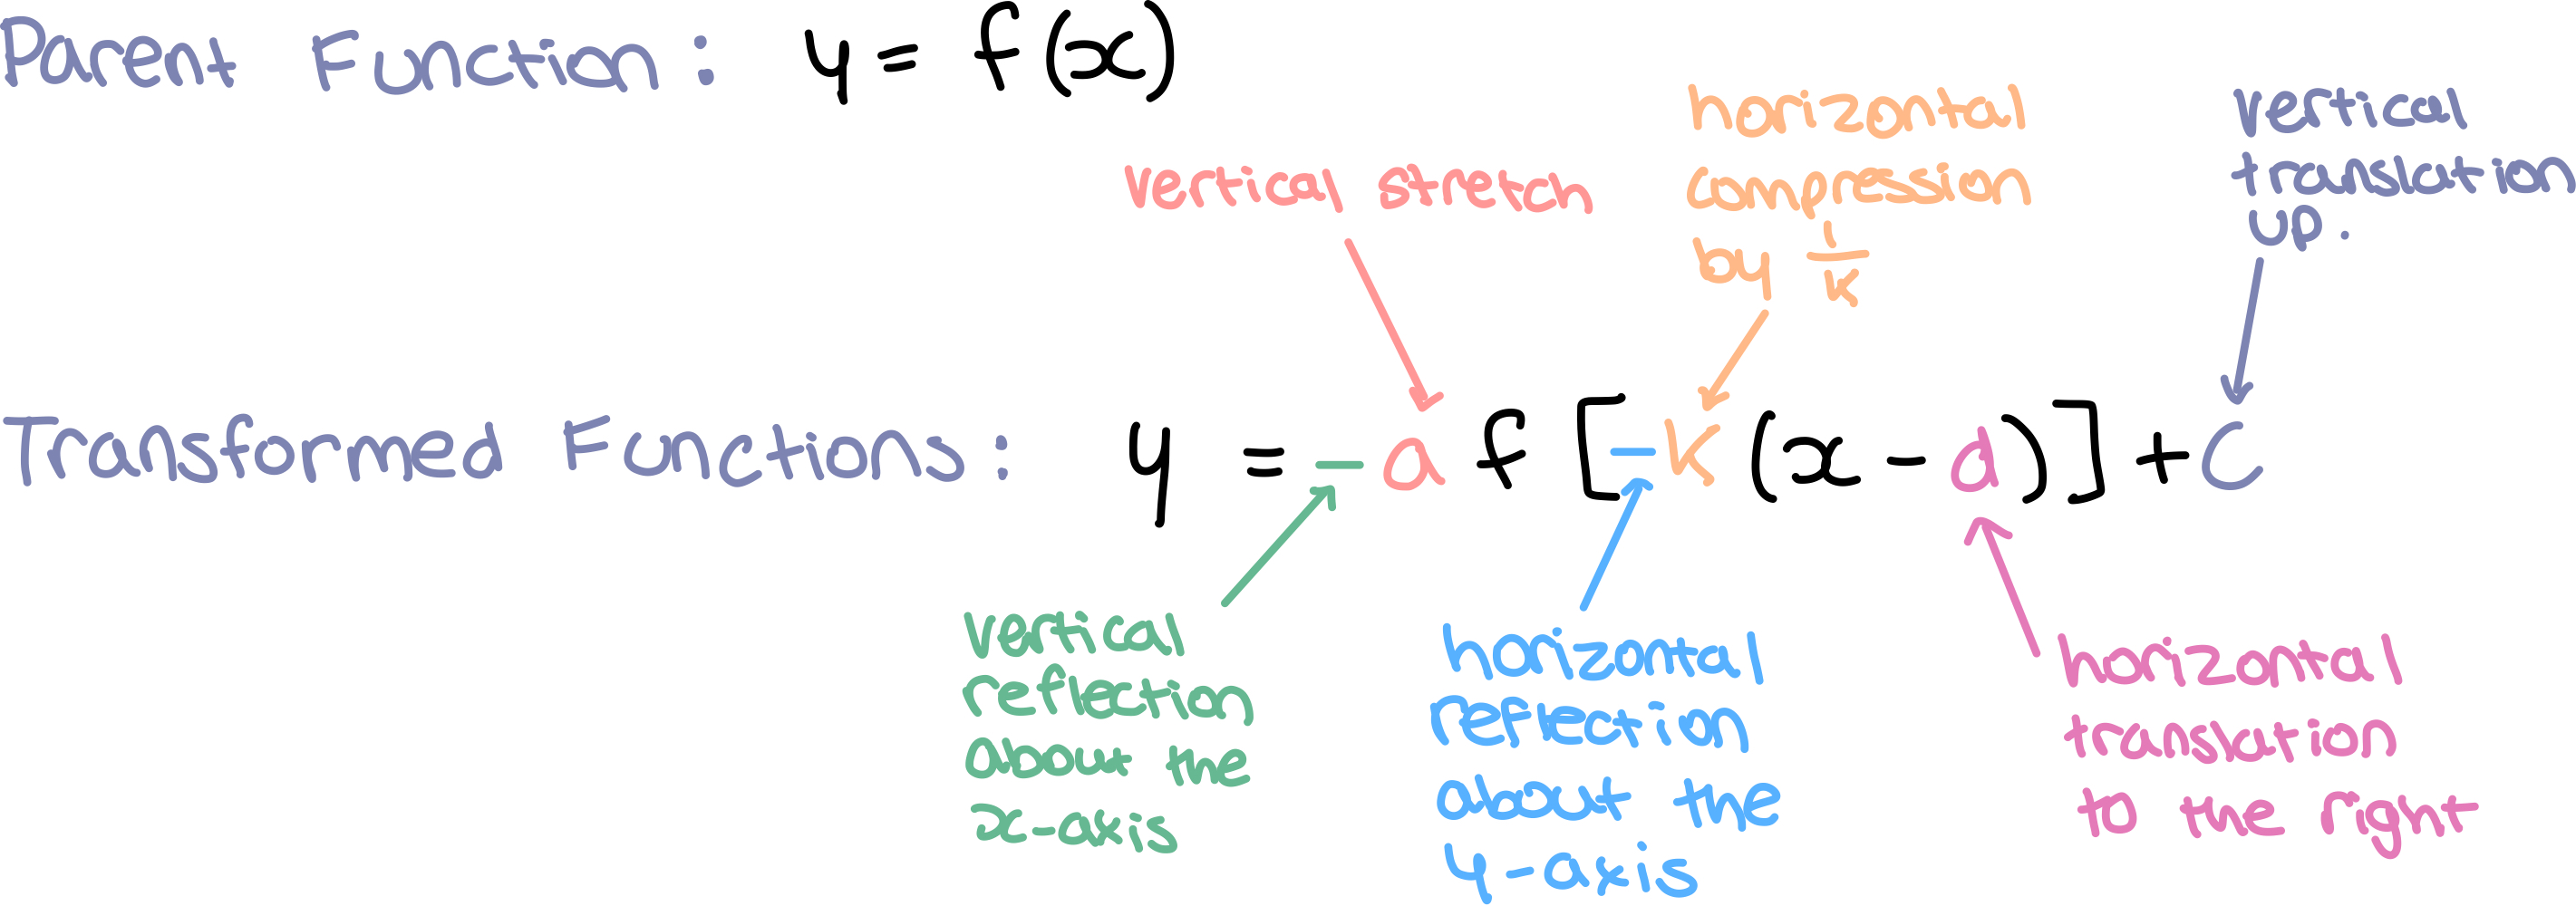 Parent Function: y = f(x)
vertical stretch
horizontal
compression
by 1/k
vertical
translation
up.
Transformed Functions: y = -a f[-k(x-d)]+c
vertical
reflection
about the
x-axis
horizontal
reflection
about the
y-axis
horizontal
translation
to the right